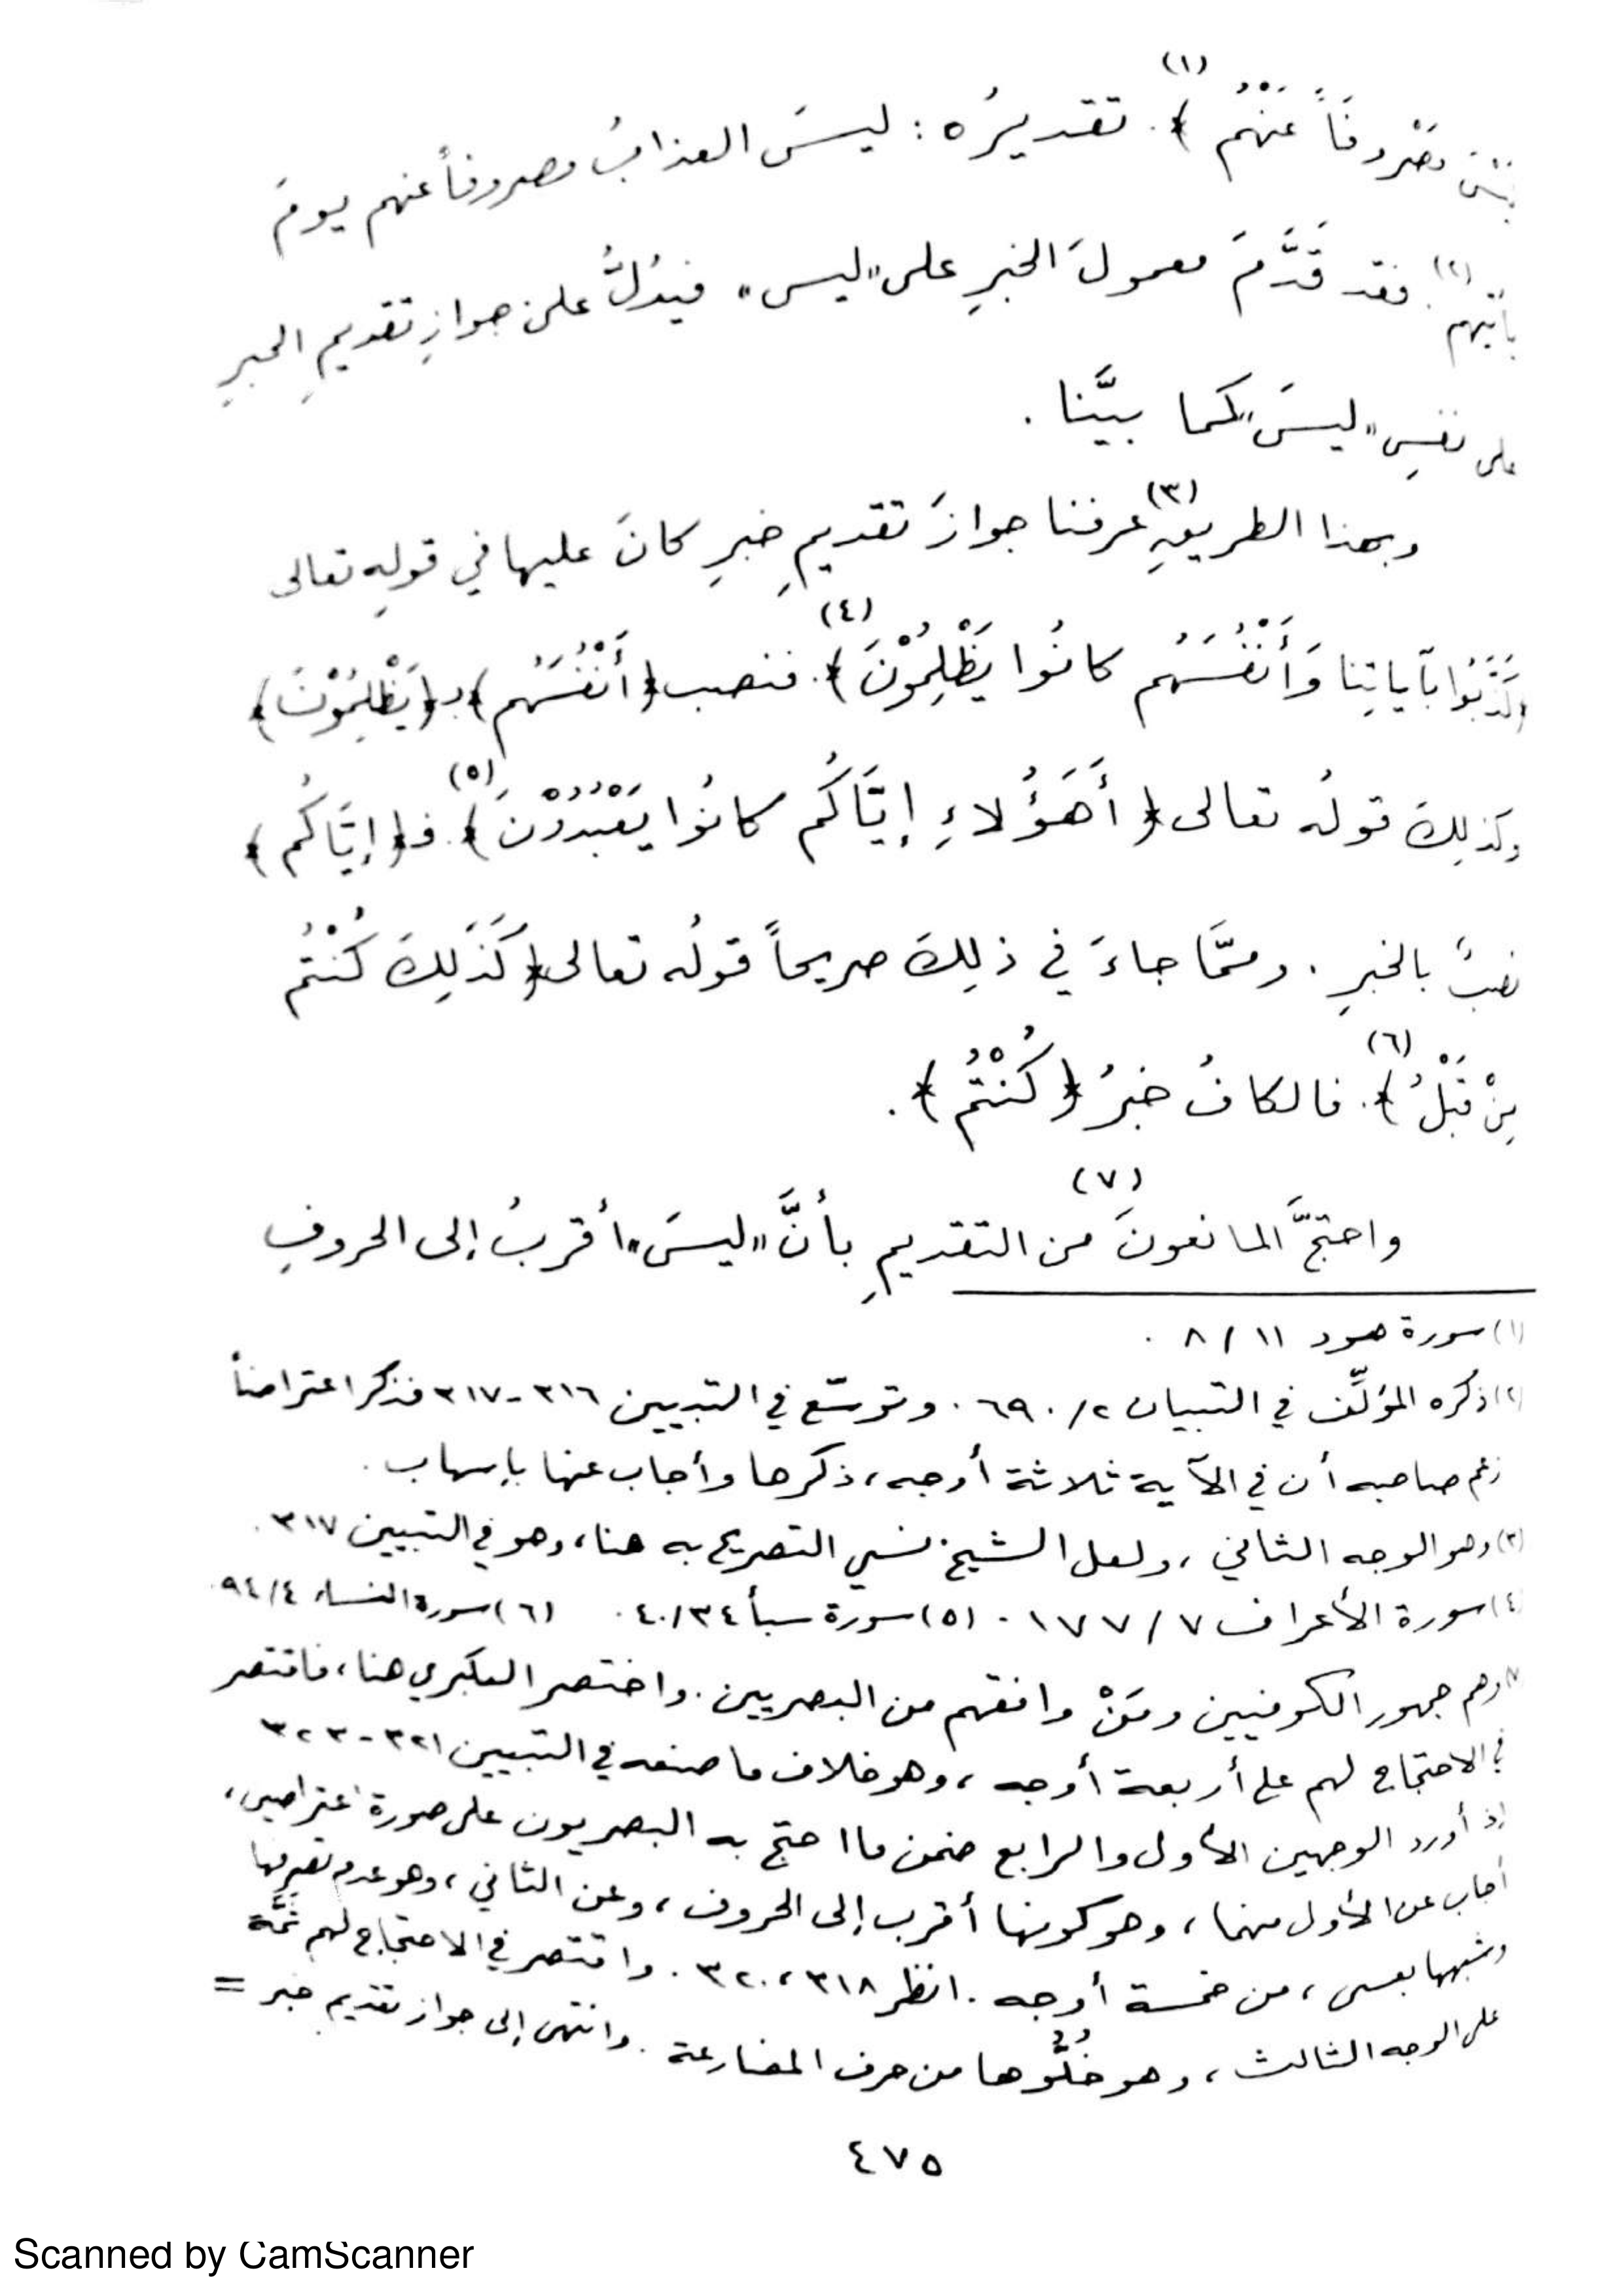 لَيْسَ مَصْرُوفَاً عَنْهُم ﴾(١). تقديرُه : ليسَ العذابُ مصروفاً عنهم يومَ
يأتيهم(٢). فقد قَدَّمَ معمولَ الخبرِ على "ليس" فيدُلُّ على جوازِ تقديمِ الخبرِ
على نفسِ "ليسَ" كما بيَّنا .
وبهذا الطريقِ(٣) عرفنا جوازَ تقديمِ خبرِ كانَ عليها في قولِه تعالى
﴿كَذَّبُوا بآياتِنا وَأَنْفُسَهُم كانُوا يَظْلِمُوْنَ ﴾(٤). فنصب ﴿ أَنْفُسَهُم ﴾ بـ ﴿ يَظْلِمُوْنَ ﴾
وكذلِكَ قولُه تعالى ﴿ أَهَؤُلاءِ إيَّاكُم كانُوا يَعْبُدُوْنَ ﴾(٥). فـ ﴿ إيَّاكُم ﴾
نصبٌ بالخبرِ . وممَّا جاءَ في ذلِكَ صريحاً قولُه تعالى ﴿ كَذَلِكَ كُنْتُم
مِنْ قَبْلُ ﴾(٦). فالكافُ خبرُ ﴿ كُنْتُم ﴾ .
واحتجَّ المانعونَ(٧) من التقديمِ بأنَّ "ليسَ" أقربُ إلى الحروفِ
(١) سورة هود ١١ / ٨ .
(٢) ذكره المؤلِّف في التبيان ٢/ ٦٩٠ . وتوسّع في التبيين ٣١٦-٣١٧ فذكر اعتراضاً
زعم صاحبه أن في الآية ثلاثة أوجه ، ذكرها وأجاب عنها بإسهاب .
(٣) وهو الوجه الثاني ، ولعل الشيخ نسي التصريح به هنا ، وهو في التبيين ٣١٧ .
(٤) سورة الأعراف ٧ / ١٧٧ . (٥) سورة سبأ ٣٤/ ٤٠ . (٦) سورة النساء ٤/ ٩٤ .
(٧) وهم جمهور الكوفيين ومَنْ وافقهم من البصريين . واختصر العكبري هنا ، فاقتصر
في الاحتجاج لهم على أربعة أوجه ، وهو خلاف ما صنعه في التبيين ٣٢١-٣٢٣
إذ أورد الوجهين الأول والرابع ضمن ما احتج به البصريون على صورة اعتراضين ،
أجاب عن الأول منهما ، وهو كونها أقرب إلى الحروف ، وعن الثاني ، وهو عدم تصرفها
وشبهها بعسى ، من خمسة أوجه . انظر ٣١٨ ، ٣٢٠ . واقتصر في الاحتجاج لهم ثَمَّة
على الوجه الثالث ، وهو خُلُوُّها من حرف المضارعة . وانتهى إلى جواز تقديم خبر =
٤٧٥
Scanned by CamScanner